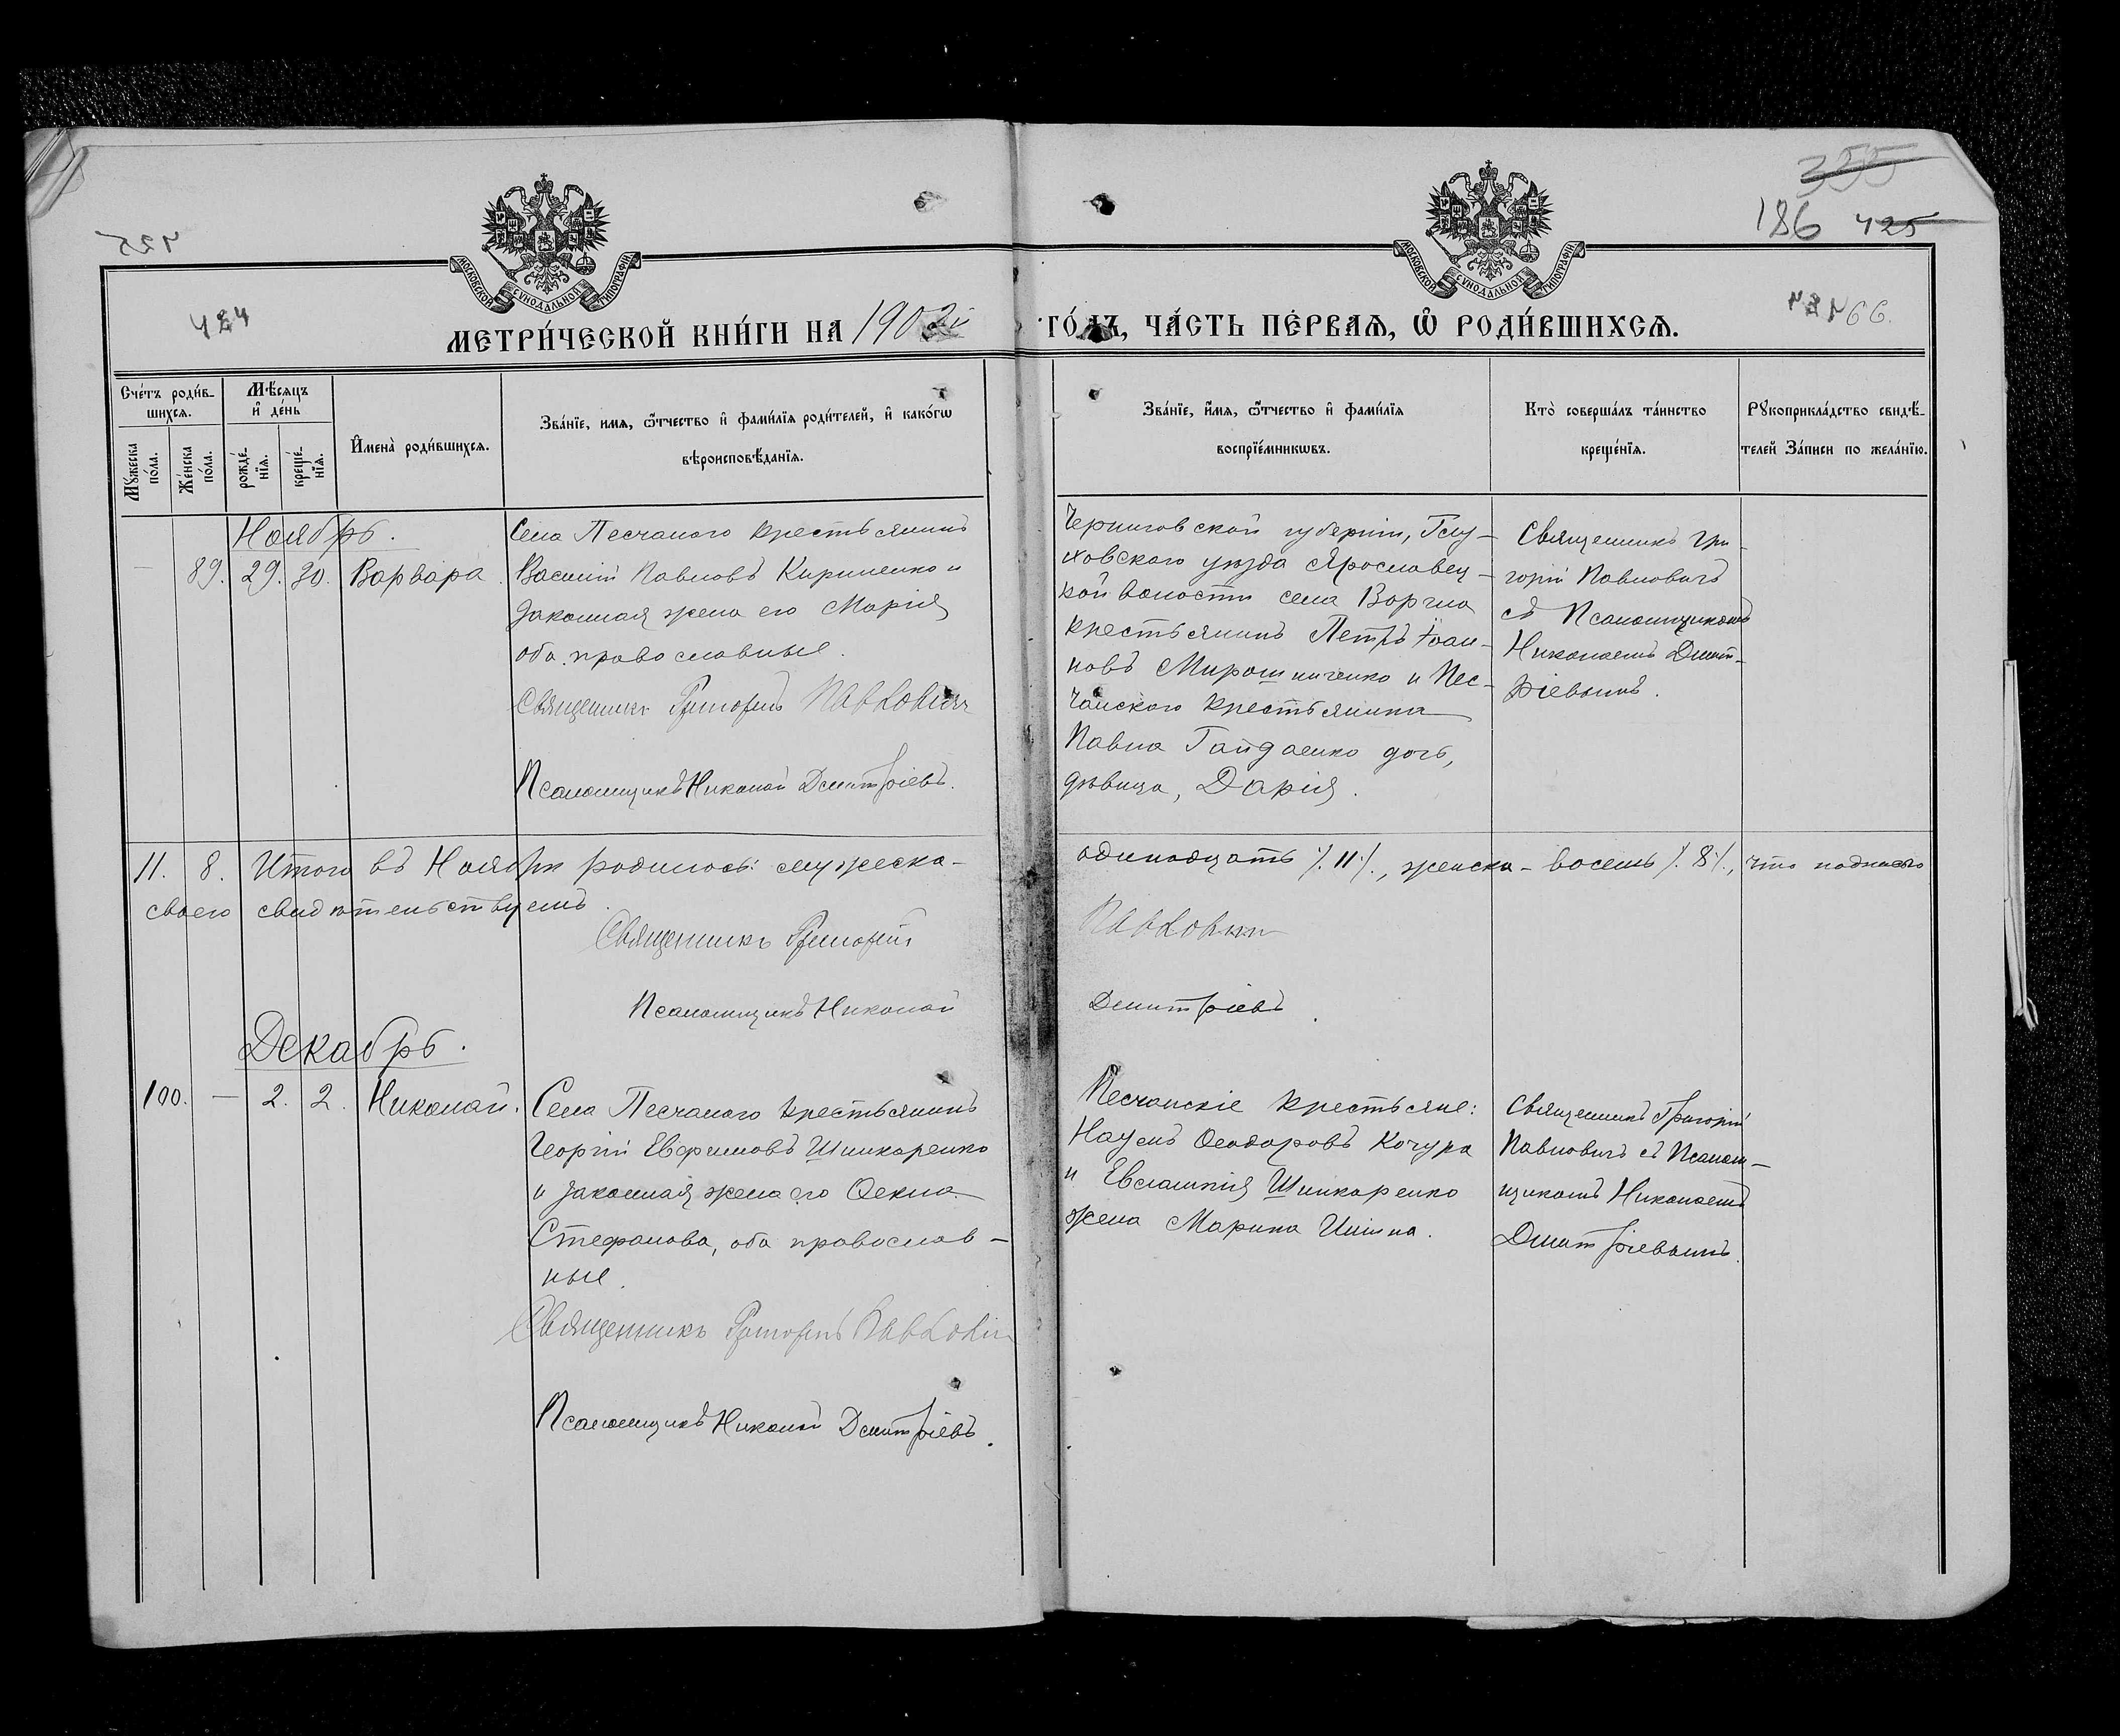 355
186 425
425
424
66.
МОСКОВСКОЙ СѴНОДАЛЬНОЙ ТИПОГРАФІИ
МОСКОВСКОЙ СѴНОДАЛЬНОЙ ТИПОГРАФІИ
МЕТРИ́ЧЕСКОЙ КНИ́ГИ НА 1902й ГО́ДЪ, ЧА́СТЬ ПЕ́РВАѦ, Ѡ҆ РОДИ́ВШИХСѦ.
Сче́тъ роди́в-
шихсѧ.
Мѣ́сѧцъ
и҆ де́нь
Мꙋ́жеска
по́ла.
Же́нска
по́ла.
рожде́-
нїѧ.
креще́-
нїѧ.
И҆мена̀ роди́вшихсѧ.
Зва́нїе, имѧ, ѻ҆́тчество и҆ фами́лїѧ роди́телей, и҆ како́гѡ
вѣроисповѣ́данїѧ.
Зва́нїе, и҆́мѧ, ѻ҆́тчество и҆ фами́лїѧ
воспрїе́мникѡвъ.
Кто̀ соверша́лъ та́инство
креще́нїѧ.
Рꙋкоприкла́дство свидѣ́-
телей За́писи по жела́нїю.
Ноябрь.
— 89. 29. 30. Варвара.
Села Песчаного крестьянинъ
Василій Павловъ Кириленко и
законная жена его Марія
оба православные.
Священникъ Григорій Павловичъ
Псаломщикъ Николай Дмитріевъ.
Черниговской губерніи, Глу-
ховского уѣзда Ярославец-
кой волости села Воргла
крестьянинъ Петръ Іоан-
новъ Мирошниченко и Пес-
чанского крестьянина
Павла Гайдаенко дочь,
дѣвица, Дарія.
Священникъ Гри-
горій Павловичъ
съ Псаломщикомъ
Николаемъ Дмит-
ріевымъ.
11. 8. Итого въ Ноябрѣ родилось: мужеска - одинадцать ⁒11⁒, женска - восемь ⁒8⁒, что подписью
своею свидѣтельствуемъ.
Священникъ Григорій Павловичъ
Псаломщикъ Николай Дмитріевъ.
Декабрь.
100. — 2. 2. Николай.
Села Песчаного крестьянинъ
Георгій Евфимовъ Шинкаренко
и законная жена его Ѳекла
Стефанова, оба православ-
ные.
Священникъ Григорій Павловичъ
Псаломщикъ Николай Дмитріевъ.
Песчанскіе крестьяне:
Наумъ Ѳеодоровъ Кочура
и Евлампія Шинкаренко
жена Марина Ильина.
Священникъ Григорій
Павловичъ съ Псалом-
щикомъ Николаемъ
Дмитріевымъ.